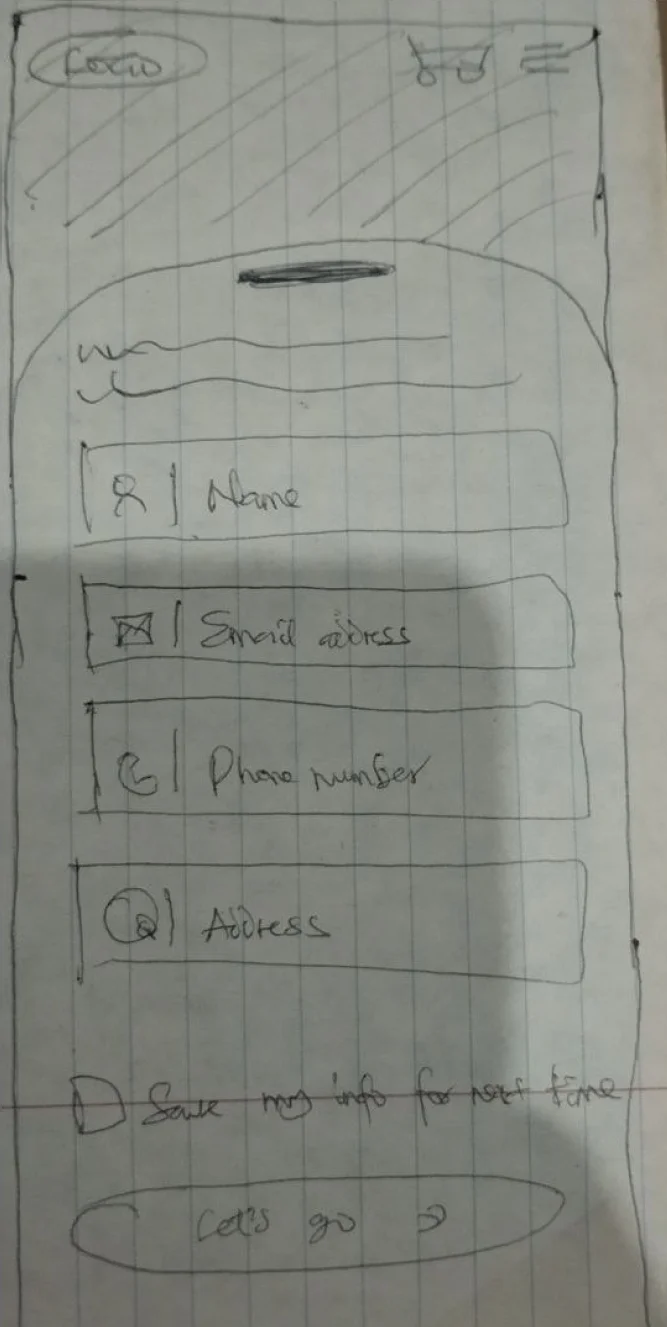 Logo
Name
Email address
Phone number
Address
Save my info for next time
Let's go